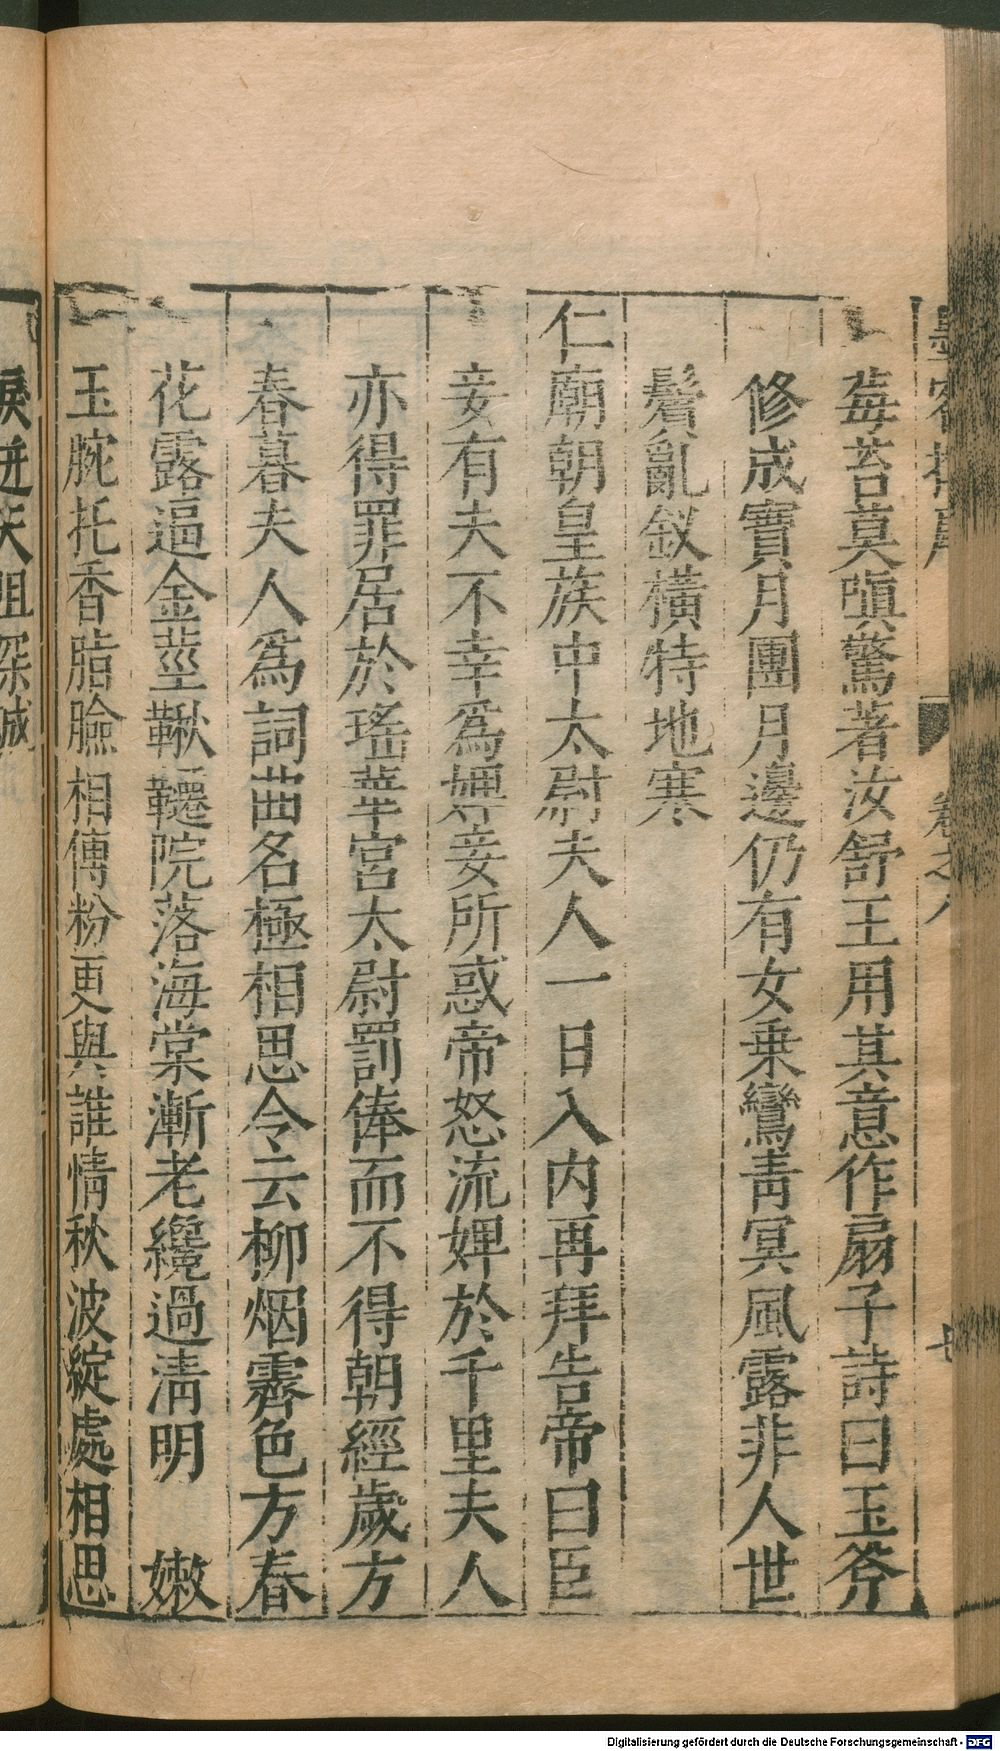 墨客揮犀 卷之八 七
莓苔莫嗔驚著汝舒王用其意作扇子詩曰玉斧
修成寶月團月邊仍有女乗鸞青冥風露非人世
鬢亂釵橫特地寒
仁廟朝皇族中太尉夫人一日入内再拜告帝曰臣
妾有夫不幸爲婢妾所惑帝怒流婢於千里夫人
亦得罪居於瑤華宮太尉罰俸而不得朝經歲方
春暮夫人爲詞曲名極相思令云柳烟霽色方春
花露逼金莖鞦韆院落海棠漸老纔過清明　嫩
玉腕托香脂臉相傳粉更與誰情秋波綻處相思
淚迸天阻深誠
Digitalisierung gefördert durch die Deutsche Forschungsgemeinschaft - DFG